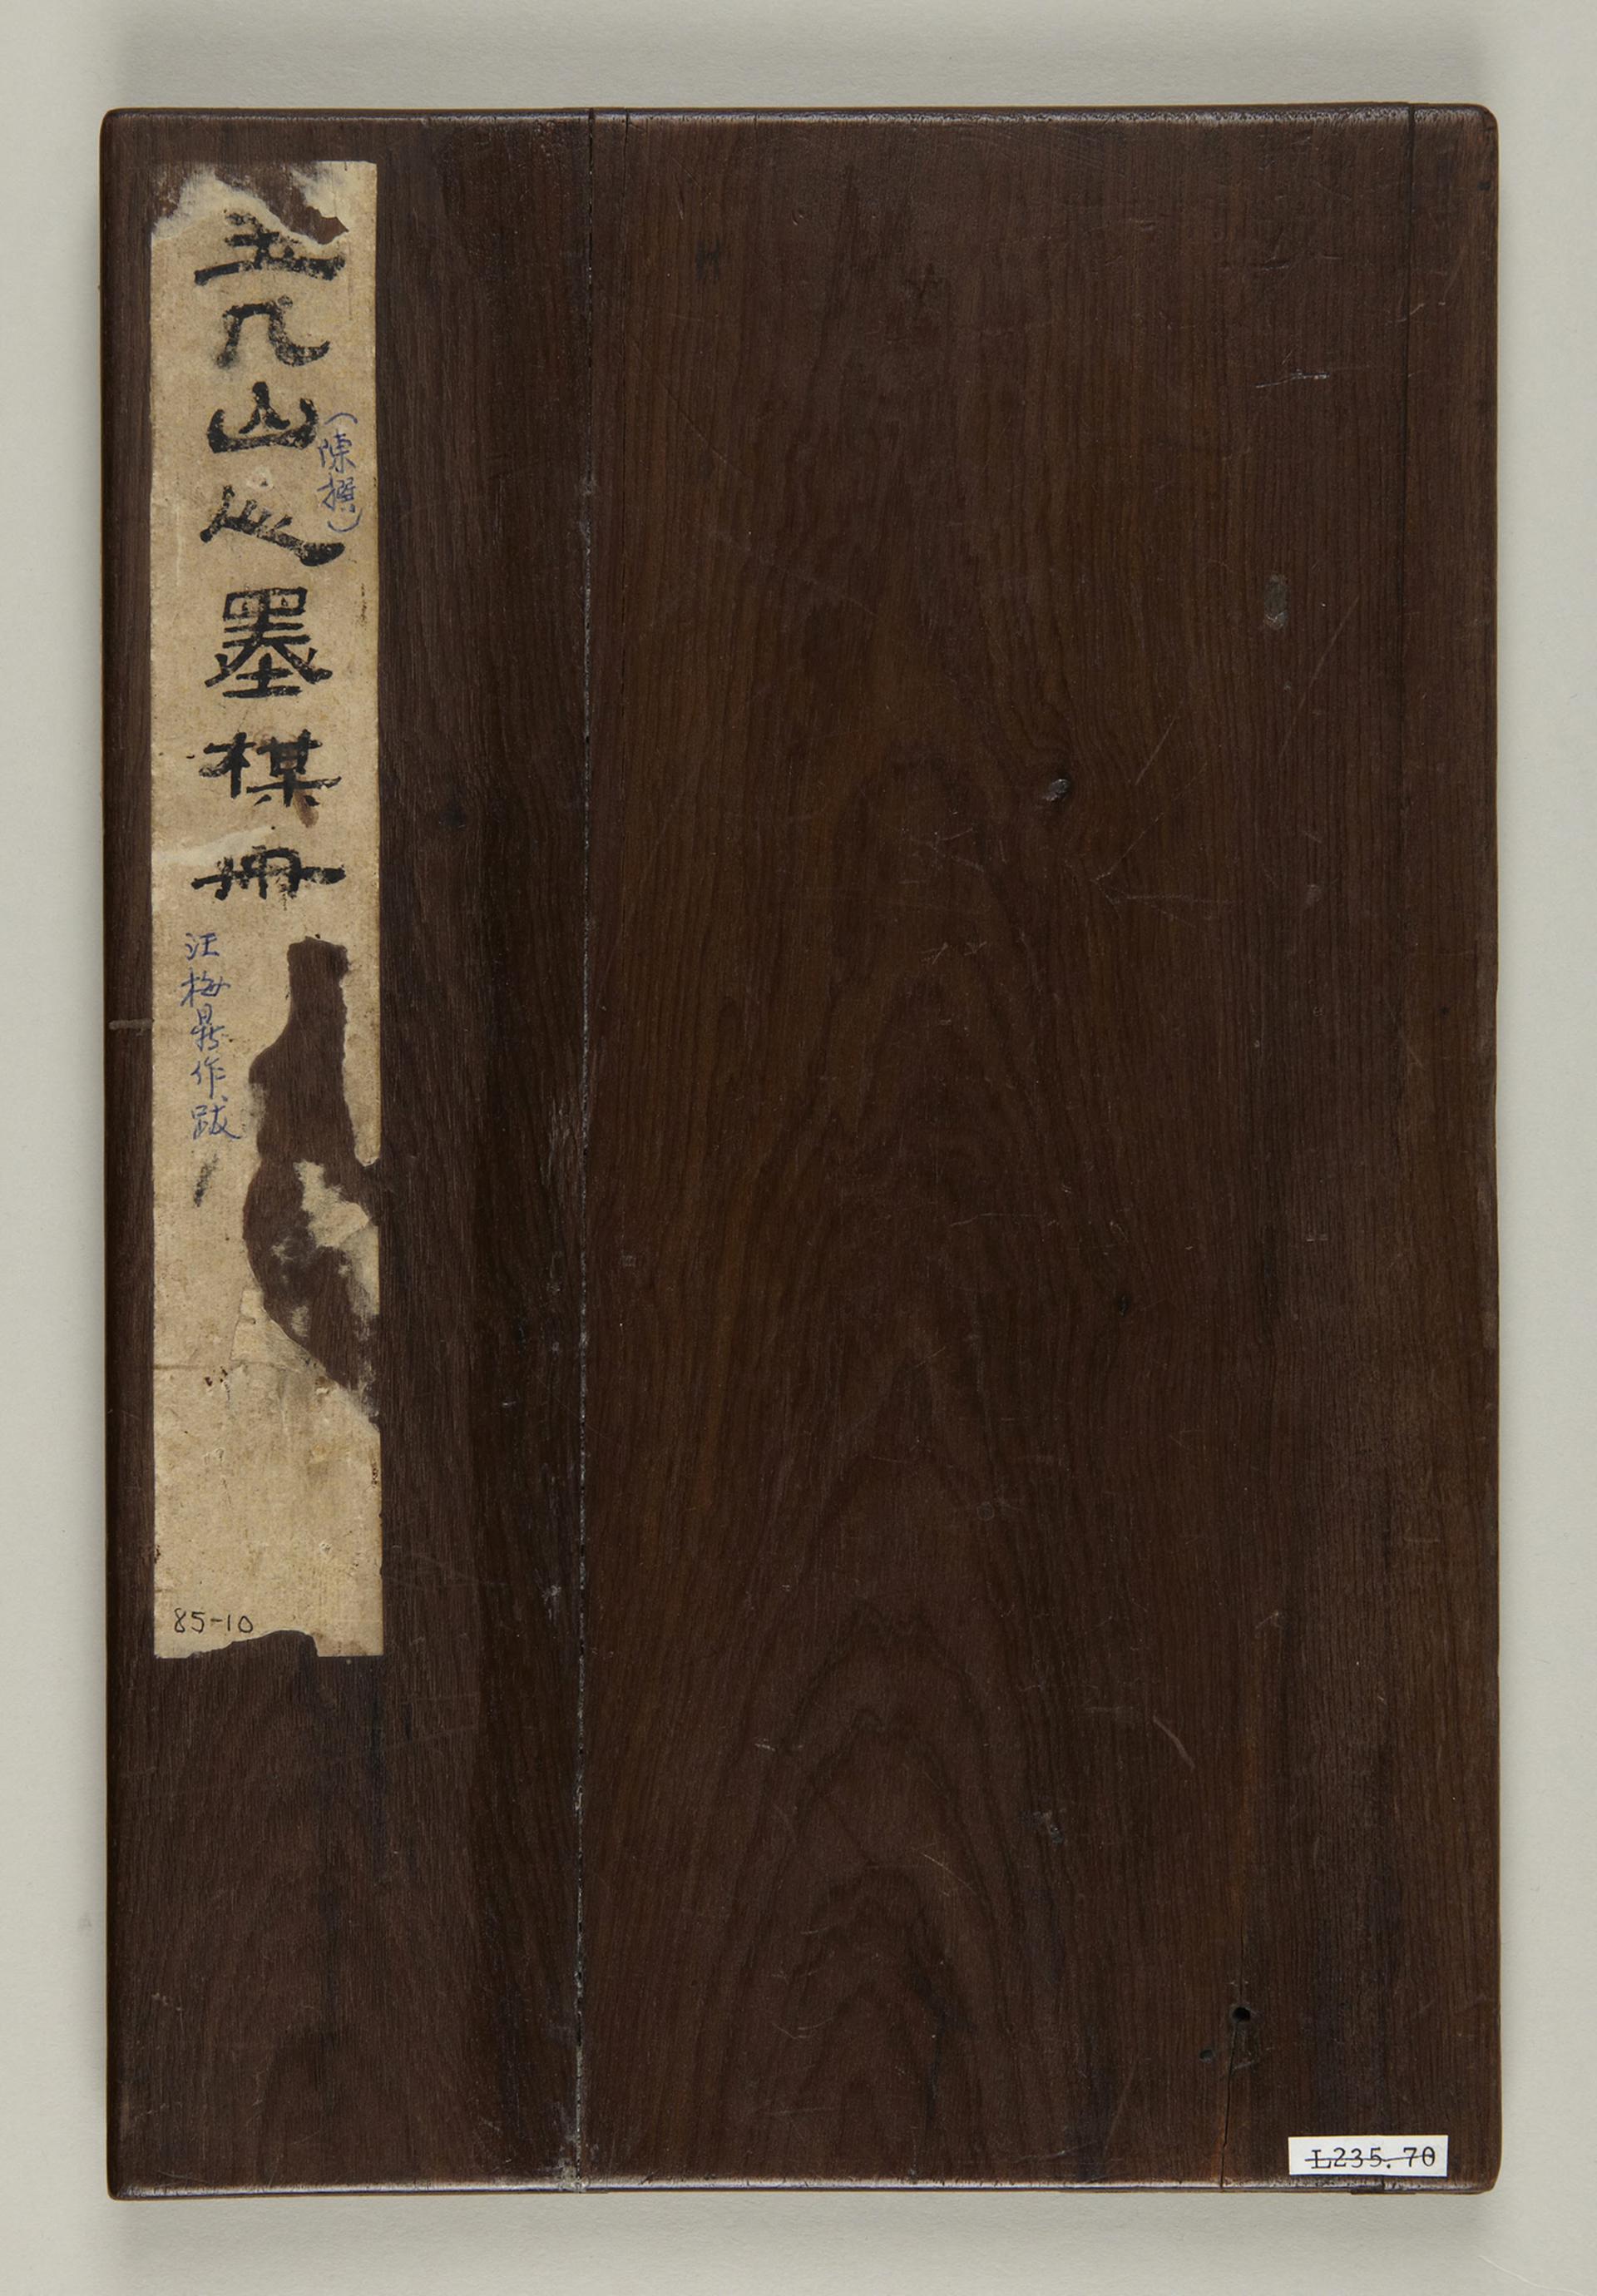 玉几山人墨楳冊
（陳撰）
汪梅鼎作跋
85-10
L235.70